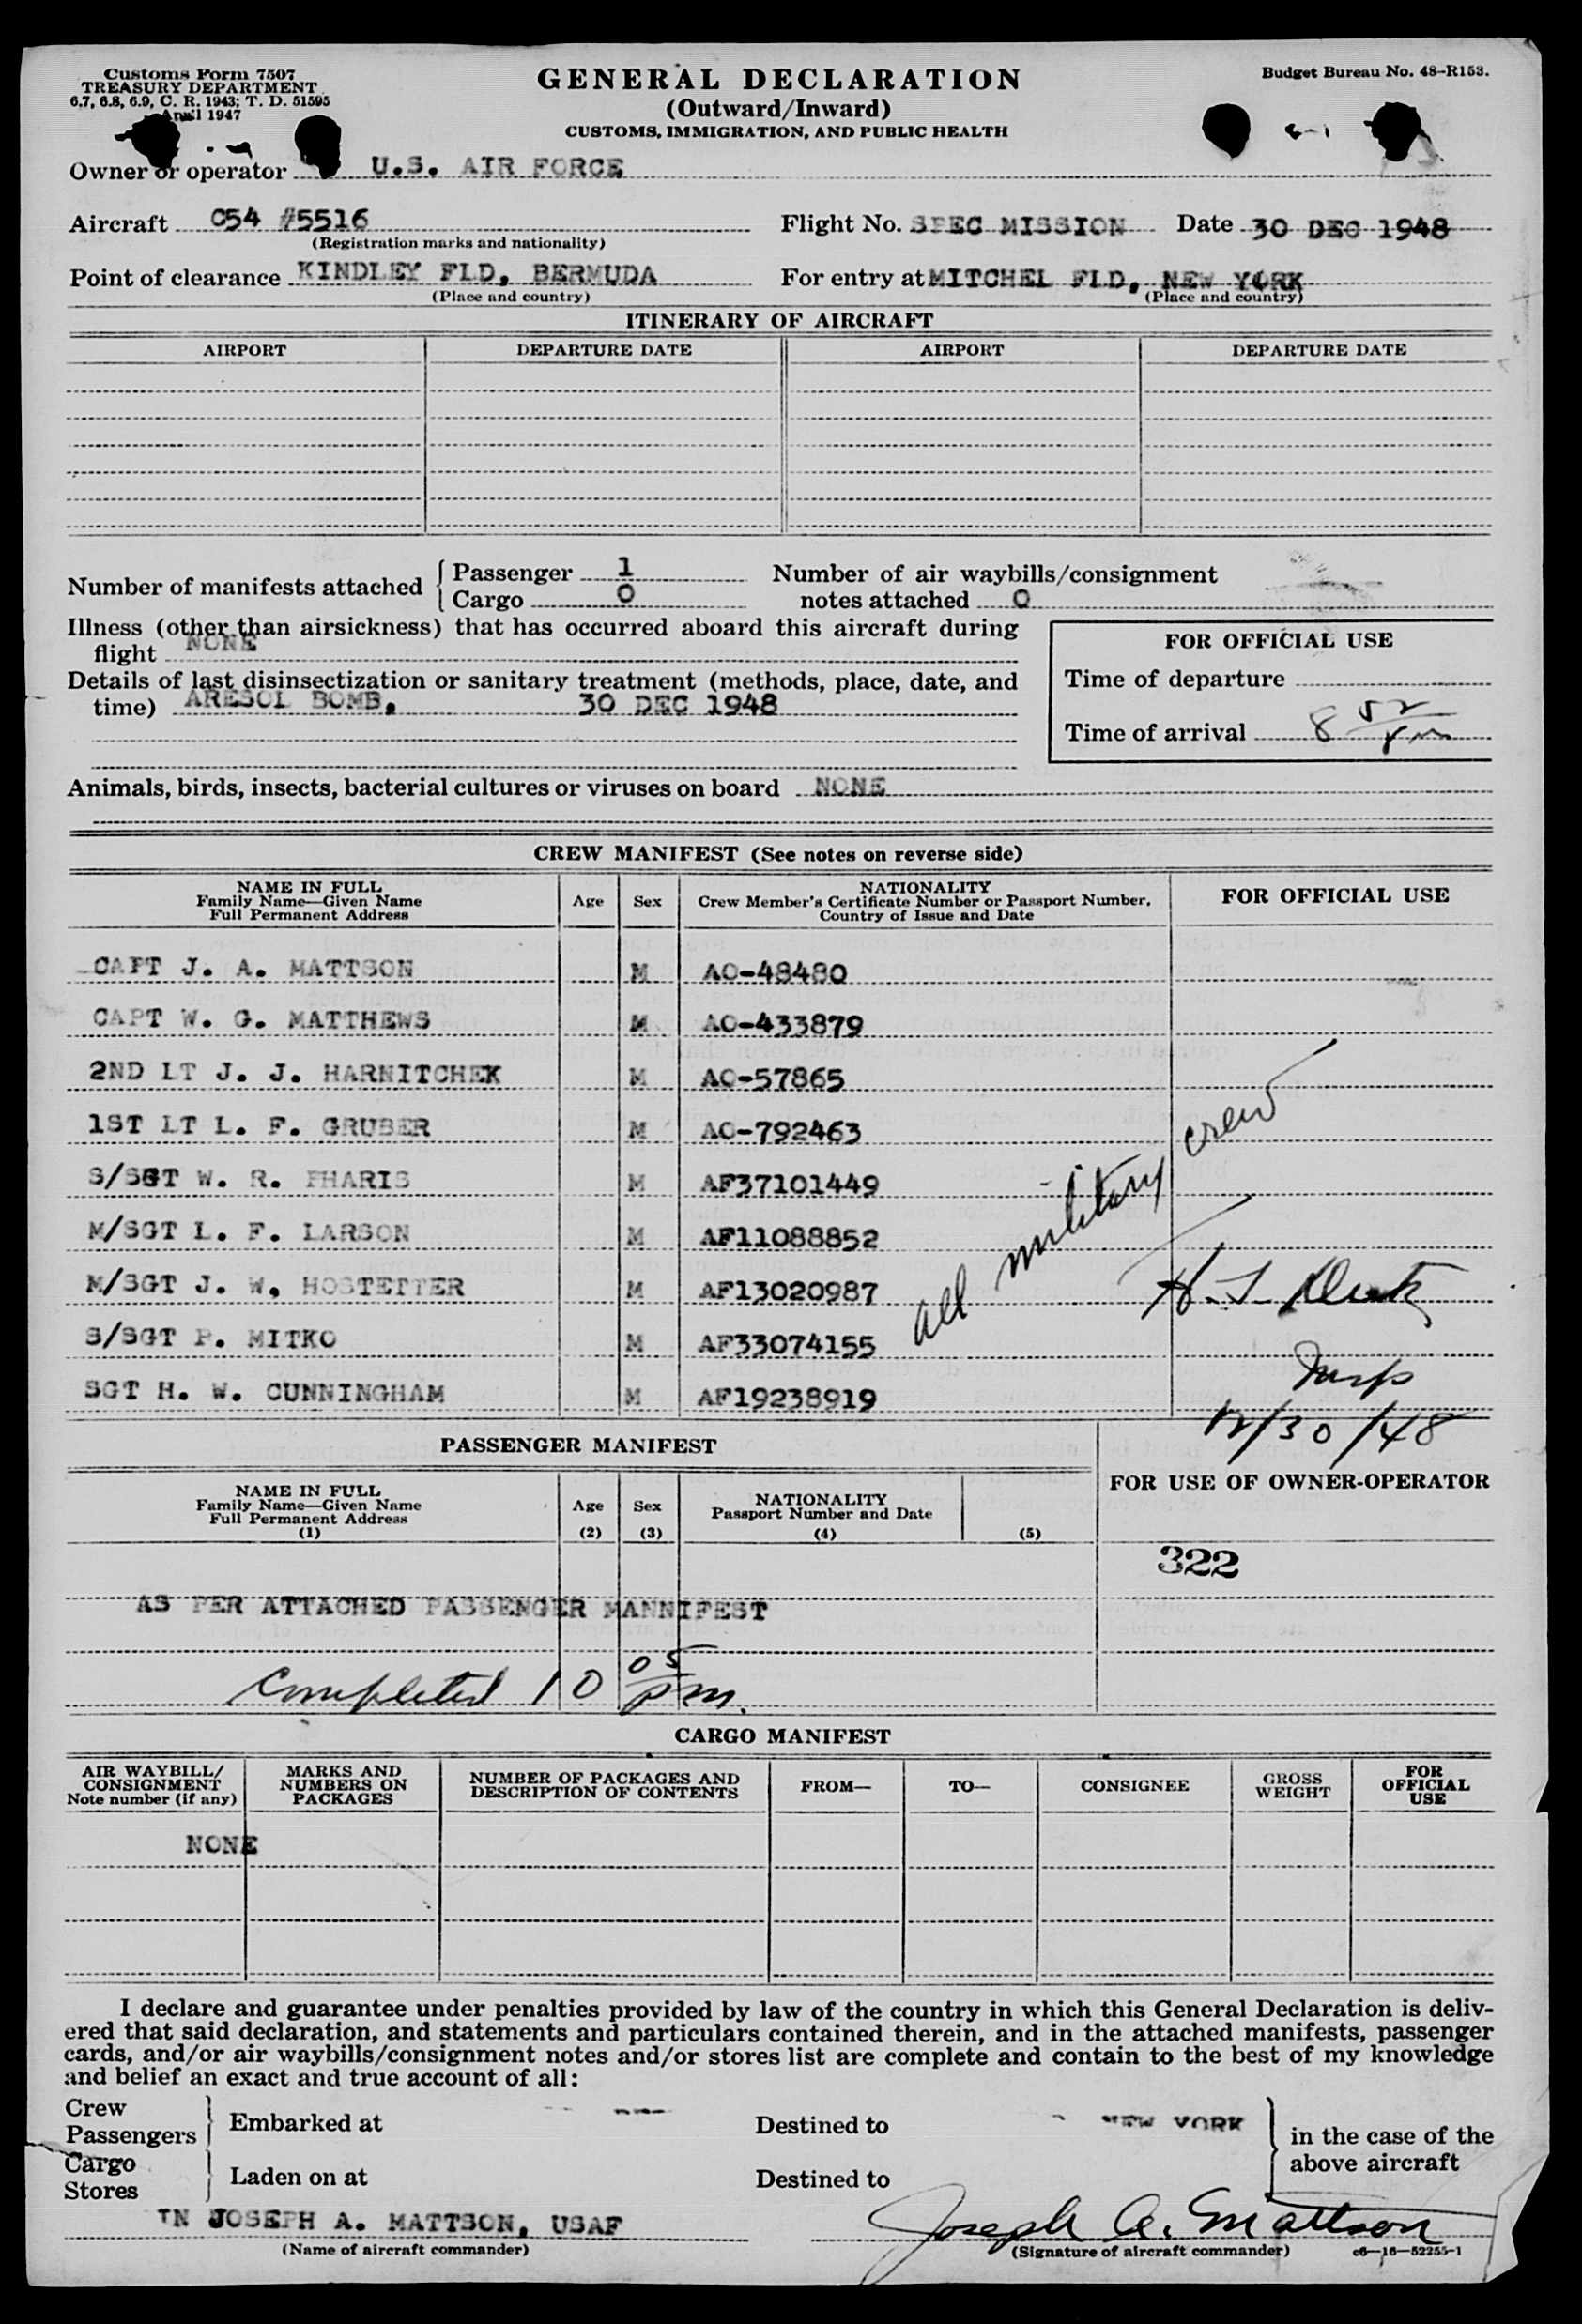 Customs Form 7507
TREASURY DEPARTMENT
6.7, 6.8, 6.9, C. R. 1943; T. D. 51595
April 1947
GENERAL DECLARATION
(Outward/Inward)
CUSTOMS, IMMIGRATION, AND PUBLIC HEALTH
Budget Bureau No. 48-R153.
Owner or operator U.S. AIR FORCE
Aircraft C54 #5516 Flight No. SPEC MISSION Date 30 DEC 1948
(Registration marks and nationality)
Point of clearance KINDLEY FLD, BERMUDA For entry at MITCHEL FLD, NEW YORK
(Place and country) (Place and country)
ITINERARY OF AIRCRAFT
AIRPORT DEPARTURE DATE AIRPORT DEPARTURE DATE
Number of manifests attached Passenger 1 Number of air waybills/consignment
Cargo 0 notes attached 0
Illness (other than airsickness) that has occurred aboard this aircraft during
flight NONE
Details of last disinsectization or sanitary treatment (methods, place, date, and
time) ARESOL BOMB, 30 DEC 1948
FOR OFFICIAL USE
Time of departure
Time of arrival 8 52 pm
Animals, birds, insects, bacterial cultures or viruses on board NONE
CREW MANIFEST (See notes on reverse side)
NAME IN FULL
Family Name—Given Name
Full Permanent Address
Age Sex
NATIONALITY
Crew Member's Certificate Number or Passport Number,
Country of Issue and Date
FOR OFFICIAL USE
CAPT J. A. MATTSON M AO-48480
CAPT W. G. MATTHEWS M AO-433879
2ND LT J. J. HARNITCHEK M AO-57865
1ST LT L. F. GRUBER M AO-792463
S/SGT W. R. PHARIS M AF37101449
M/SGT L. F. LARSON M AF11088852
M/SGT J. W. HOSTETTER M AF13020987
S/SGT P. MITKO M AF33074155
SGT H. W. CUNNINGHAM M AF19238919
all military crew
12/30/48
PASSENGER MANIFEST
NAME IN FULL
Family Name—Given Name
Full Permanent Address
(1)
Age
(2)
Sex
(3)
NATIONALITY
Passport Number and Date
(4) (5)
FOR USE OF OWNER-OPERATOR
322
AS PER ATTACHED PASSENGER MANNIFEST
Completed 10 05 pm.
CARGO MANIFEST
AIR WAYBILL/
CONSIGNMENT
Note number (if any)
MARKS AND
NUMBERS ON
PACKAGES
NUMBER OF PACKAGES AND
DESCRIPTION OF CONTENTS
FROM— TO— CONSIGNEE
GROSS
WEIGHT
FOR
OFFICIAL
USE
NONE
I declare and guarantee under penalties provided by law of the country in which this General Declaration is deliv-
ered that said declaration, and statements and particulars contained therein, and in the attached manifests, passenger
cards, and/or air waybills/consignment notes and/or stores list are complete and contain to the best of my knowledge
and belief an exact and true account of all:
Crew
Passengers Embarked at Destined to NEW YORK in the case of the
Cargo above aircraft
Stores Laden on at Destined to
JOSEPH A. MATTSON, USAF Joseph A. Mattson
(Name of aircraft commander) (Signature of aircraft commander) c6—16—52255-1